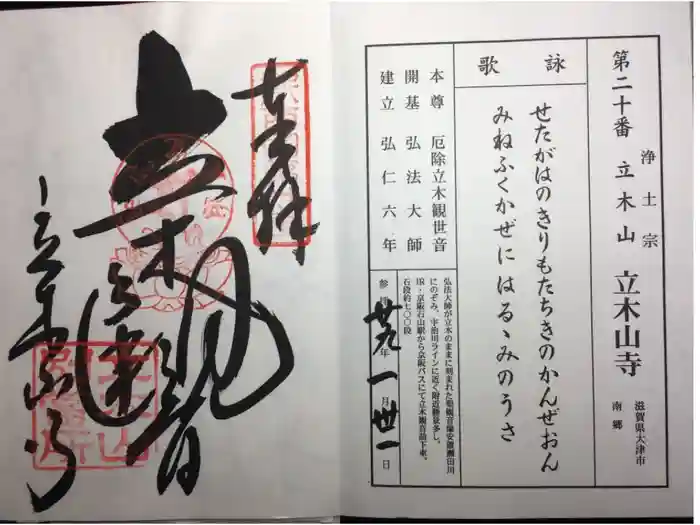 第二十番 浄土宗 立木山 立木山寺 滋賀県大津市 南郷
詠歌
せたがはのきりもたちきのかんぜおん
みねふくかぜにはるゝみのうさ
本尊 厄除立木観世音
開基 弘法大師
建立 弘仁六年
弘法大師が立木のままに刻まれた聖観音像安置瀬田川
にのぞみ、宇治川ラインに近く附近勝景多し。
JR・京阪石山駅から京阪バスにて立木観音前下車、
石段約七〇〇段
参拝 廿九年 一月 卅一日
奉拝
立木観音
立木山寺